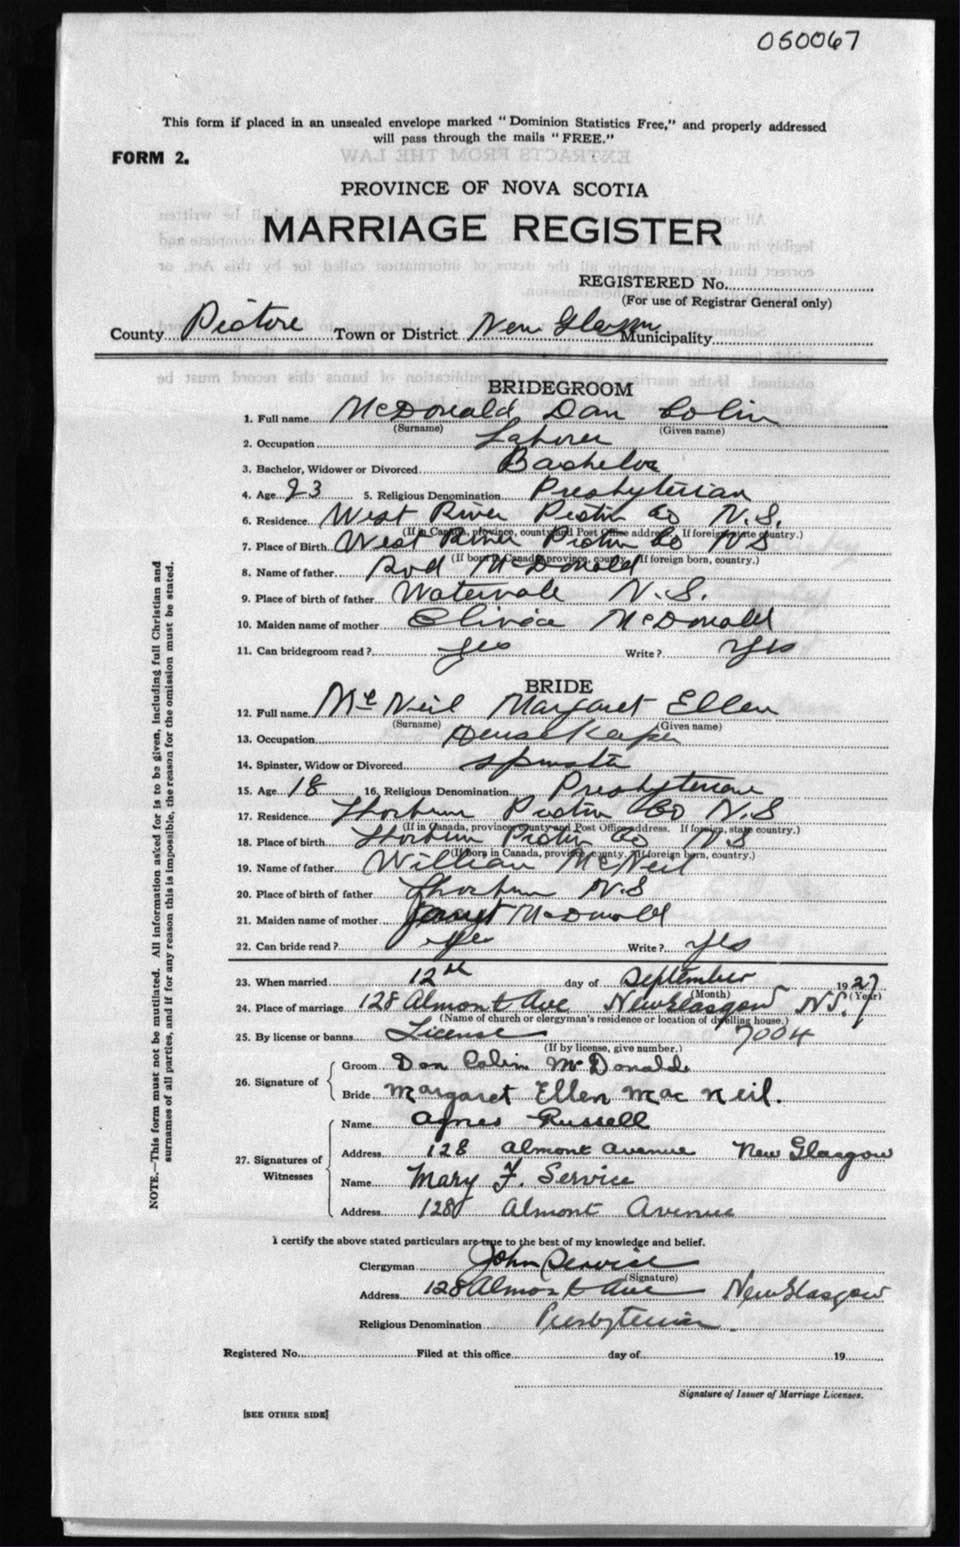 050067
This form if placed in an unsealed envelope marked "Dominion Statistics Free," and properly addressed
will pass through the mails "FREE."
FORM 2.
PROVINCE OF NOVA SCOTIA
MARRIAGE REGISTER
REGISTERED No.
(For use of Registrar General only)
County Pictou Town or District New Glasgow Municipality
BRIDEGROOM
1. Full name McDonald, Dan Colin
(Surname) (Given name)
2. Occupation Laborer
3. Bachelor, Widower or Divorced Bachelor
4. Age 23 5. Religious Denomination Presbyterian
6. Residence West River Pictou Co N.S.
(If in Canada, province, county and Post Office address. If foreign, state country.)
7. Place of Birth West River Pictou Co NS
(If born in Canada, province, county. If foreign born, country.)
8. Name of father Rod McDonald
9. Place of birth of father Watervale N.S.
10. Maiden name of mother Olivia McDonald
11. Can bridegroom read? yes Write? Yes
BRIDE
12. Full name McNeil Margaret Ellen
(Surname) (Given name)
13. Occupation
14. Spinster, Widow or Divorced Spinster
15. Age 18 16. Religious Denomination Presbyterian
17. Residence Thorburn Pictou Co N.S
(If in Canada, province county and Post Office address. If foreign, state country.)
18. Place of birth Thorburn Pictou Co NS
(If born in Canada, province, county. If foreign born, country.)
19. Name of father William McNeil
20. Place of birth of father Thorburn N.S
21. Maiden name of mother McDonald
22. Can bride read? Yes Write? Yes
23. When married 12th day of September 1927
(Month) (Year)
24. Place of marriage 128 Almont Ave New Glasgow N.S.
(Name of church or clergyman's residence or location of dwelling house.)
25. By license or banns License 7004
(If by license, give number.)
26. Signature of
Groom Dan Colin McDonald
Bride Margaret Ellen MacNeil.
27. Signatures of Witnesses
Name Agnes Russell
Address 128 Almont Avenue New Glasgow
Name Mary F. Service
Address 128 Almont Avenue
I certify the above stated particulars are true to the best of my knowledge and belief.
Clergyman John Service
(Signature)
Address 128 Almont Ave New Glasgow
Religious Denomination Presbyterian
Registered No. Filed at this office day of 19
Signature of Issuer of Marriage Licenses.
[SEE OTHER SIDE]
NOTE.—This form must not be mutilated. All information asked for is to be given, including full Christian and
surnames of all parties, and if for any reason this is impossible, the reason for the omission must be stated.